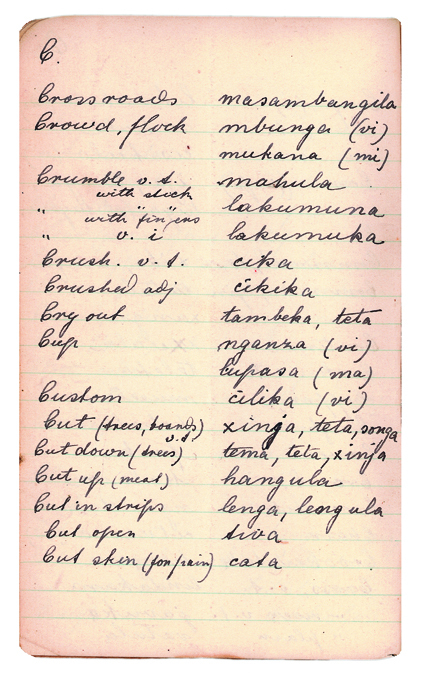 C.
Crossroads masambangila
Crowd, flock mbunga (vi)
mukana (mi)
Crumble v.t. mahula
with stick
" " lakumuna
with fingers
" v. i lakumuka
Crush. v. t. cika
Crushed adj cikika
Cry out tambeka, teta
Cup nganza (vi)
lupasa (ma)
Custom cilika (vi)
Cut (trees, boards) v.t xinja, teta, songa
Cut down (trees) tema, teta, xinja
Cut up (meat) hangula
Cut in strips lenga, lengula
Cut open tiva
Cut skin (for pain) cata